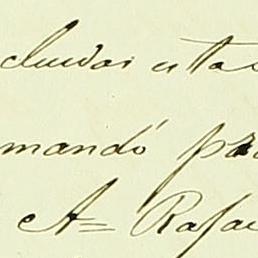 cluidas estas
mandó pa
A= Rafae